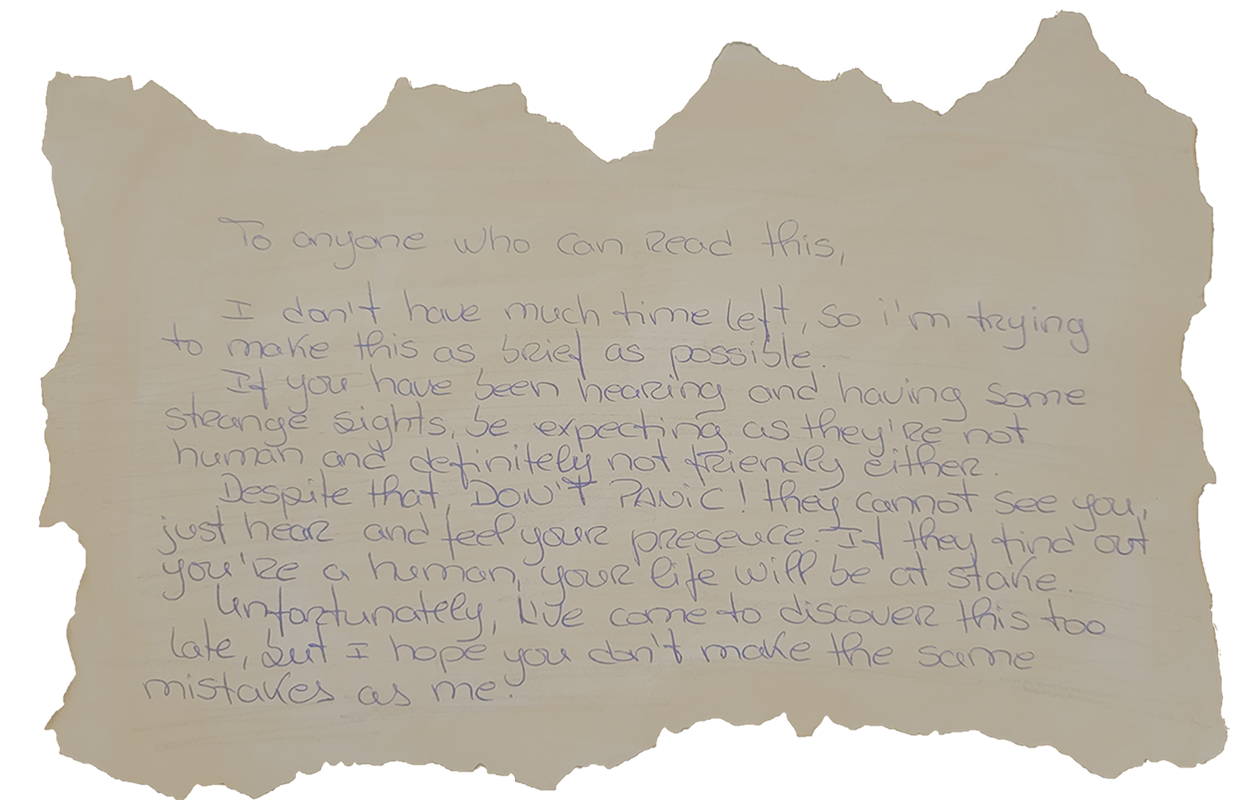 To anyone who can read this,
I don't have much time left, so i'm trying
to make this as brief as possible.
If you have been hearing and having some
strange sights, be expecting as they're not
human and definitely not friendly either.
Despite that, DON'T PANIC! they cannot see you,
just hear and feel your presence. If they find out
you're a human, your life will be at stake.
Unfortunately, I've come to discover this too
late, but I hope you don't make the same
mistakes as me.